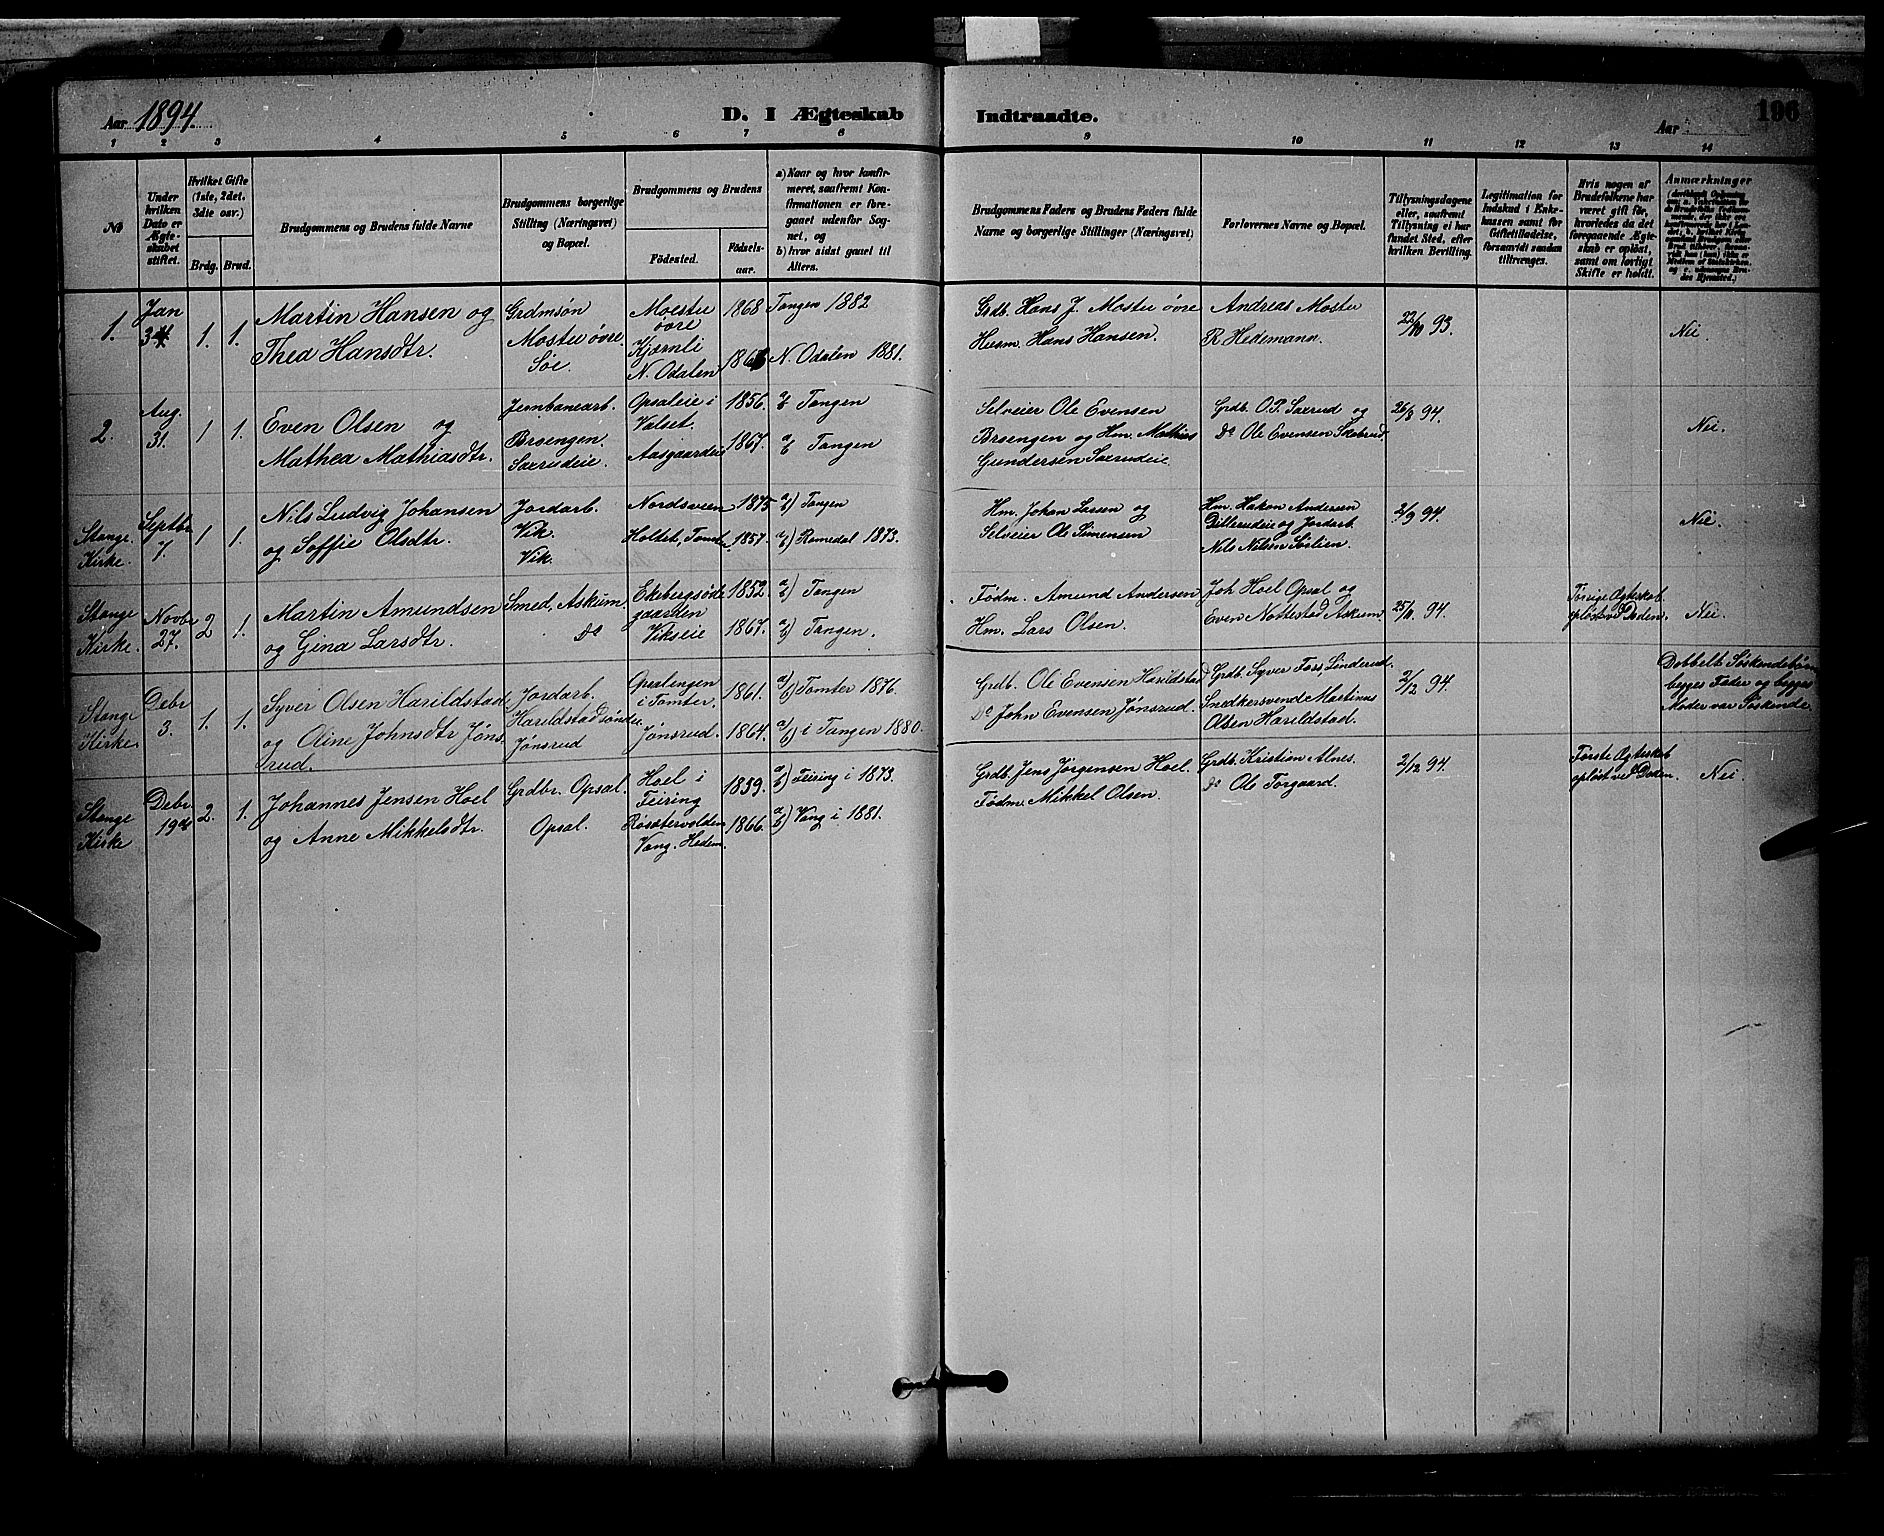 Aar 1894
D. I Ægteskab Indtraadte.
Aar 196
1 2 3 4 5 6 7 8 9 10 11 12 13 14
No
Under hvilken Dato er Ægteskabet stiftet.
Hvilket Gifte (1ste, 2det, 3die osv.)
Brdg. Brud.
Brudgommens og Brudens fulde Navne
Brudgommens borgerlige Stilling (Næringsvei) og Bopæl.
Brudgommens og Brudens
Fødested. Fødselsaar.
a) Naar og hvor konfirmeret, saafremt Konfirmationen er foregaaet udenfor Sognet, og
b) hvor sidst gaaet til Alters.
Brudgommens Faders og Brudens Faders fulde Navne og borgerlige Stillinger (Næringsvei)
Forlovernes Navne og Bopæl.
Tillysningsdagene eller, saafremt Tillysning ei har fundet Sted, efter hvilken Bevilling.
Legitimation for Indskud i Enkekassen samt for Giftetilladelse, forsaavidt saadan tiltrænges.
Hvis nogen af Brudefolkene har været gift før, hvorledes da det foregaaende Ægteskab er opløst, samt om lovligt Skifte er holdt.
Anmærkninger
1.
Jan
1. 1.
Martin Hansen og
Thea Hansdtr.
Grdmsøn
Mostu øvre
Søe.
Moestu
øvre
Kjærnli
N. Odalen
1868
Tangen 1882
N. Odalen 1881.
Grdb. Hans J. Mostu øvre
Husm. Hans Hansen.
Andreas Mostu
R Hedemann.
22/10 93.
Nei.
2.
Aug.
31.
1 1.
Even Olsen og
Mathea Mathiasdtr.
Jernbanearb.
Broengen.
Saxrudeie.
Opsaleie i
Valset.
Aasgaardeie
1856.
1867.
Tangen
Tangen
Selveier Ole Evensen
Broengen og Hm. Mathias
Gundersen Saxrudeie.
Grdb. O.P. Saxrud og
Do Ole Evensen Skobrud.
26/8 94.
Nei.
Stange
Kirke.
Septbr
7.
1 1.
Nils Ludvig Johansen
og Soffie Olsdtr.
Jordarb.
Vik.
Vik.
Nordsveen
Holtet, Tomter
1875
1857.
a/b) Tangen
a/b) Romedal 1873.
Hm. Johan Larsen og
Selveier Ole Simensen
Hm. Hakon Andersen
Dillerudeie og Jordarb.
Nils Nilsen Sørlien.
2/9 94.
Nei.
Stange
Kirke.
Novbr
27.
2 1.
Martin Amundsen
og Gina Larsdtr.
Smed, Askum.
Do
Ekebergsøde
gaarden
Vikseie
1852.
1867.
a/b) Tangen
a/b) Tangen.
Fødm. Amund Andersen
Hm. Lars Olsen.
Joh Hoel Opsal og
Even Nøttestad Askum
25/11 94.
Forrige Ægteskab
opløst ved Døden.
Nei.
Stange
Kirke.
Debr
3.
1. 1.
Syver Olsen Harildstad
og Oline Johnsdtr Jøns
rud.
Jordarb.
Harildstad søndre
Jønsrud
Opsalengen
i Tomter.
Jønsrud.
1861.
1864.
a/b) Tomter 1876.
a/b) i Tangen 1880.
Grdb. Ole Evensen Harildstad
Do John Evensen Jønsrud.
Grdb. Syver Foss, Linderud.
Snedkersvend Martinus
Olsen Harildstad.
2/12 94.
Dobbelt Søskendebørn
begges Fader og begges
Moder var Søskende
Stange
Kirke
Debr.
19de
2. 1.
Johannes Jensen Hoel
og Anne Mikkelsdtr.
Grdbr. Opsal.
Opsal.
Hoel i
Feiring
Røsætervolden
Vang. Hedem.
1839.
1866.
a/b) Feiring i 1873.
a/b) Vang i 1881.
Grdb. Jens Jørgensen Hoel.
Fødm. Mikkel Olsen.
Grdb. Kristian Alnes.
Do Ole Torgaard.
2/12 94.
Første Ægteskab
opløst ved Døden.
Nei